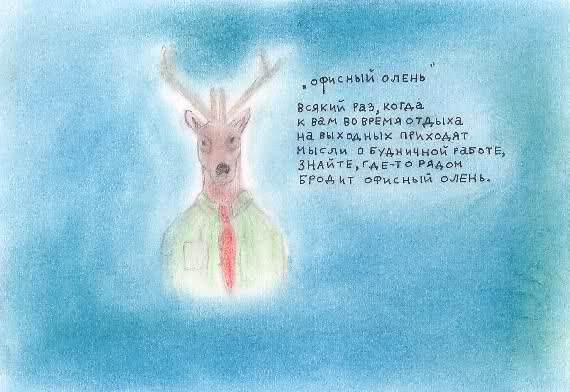 „ОФИСНЫЙ ОЛЕНЬ"
ВСЯКИЙ РАЗ, КОГДА
К ВАМ ВО ВРЕМЯ ОТДЫХА
НА ВЫХОДНЫХ ПРИХОДЯТ
МЫСЛИ О БУДНИЧНОЙ РАБОТЕ,
ЗНАЙТЕ, ГДЕ-ТО РЯДОМ
БРОДИТ ОФИСНЫЙ ОЛЕНЬ.